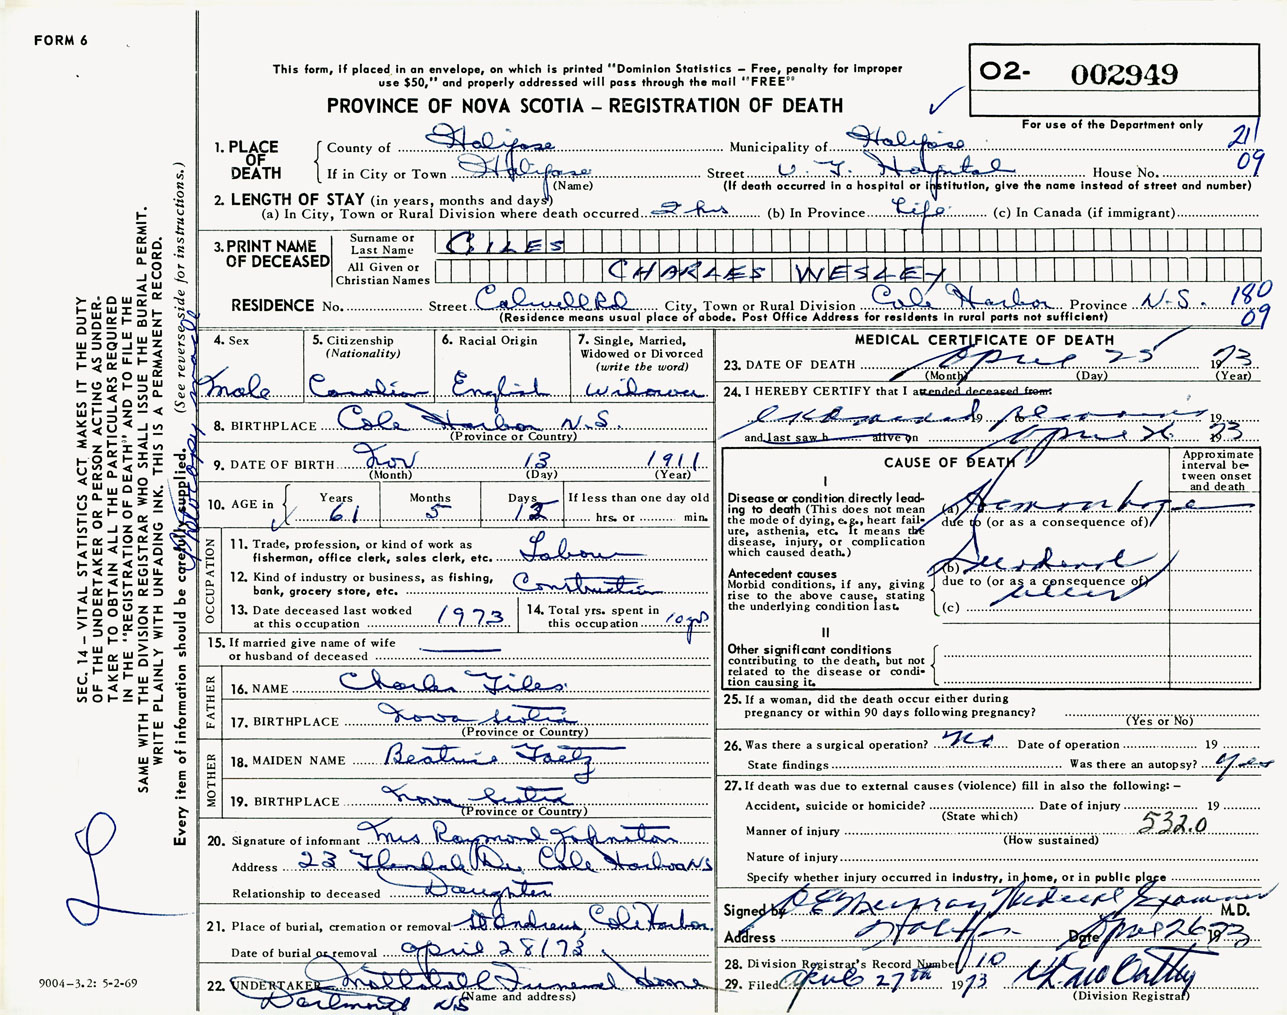 FORM 6
This form, if placed in an envelope, on which is printed "Dominion Statistics – Free, penalty for improper
use $50," and properly addressed will pass through the mail "FREE"
PROVINCE OF NOVA SCOTIA – REGISTRATION OF DEATH
O2- 002949
For use of the Department only
21
09
1. PLACE OF DEATH
County of Halifax Municipality of Halifax
If in City or Town Halifax Street V. G. Hospital House No.
(Name) (If death occurred in a hospital or institution, give the name instead of street and number)
2. LENGTH OF STAY (in years, months and days)
(a) In City, Town or Rural Division where death occurred 2 hrs (b) In Province Life (c) In Canada (if immigrant)
3. PRINT NAME OF DECEASED
Surname or Last Name GILES
All Given or Christian Names CHARLES WESLEY
RESIDENCE No. Street Calwell Rd City, Town or Rural Division Cole Harbor Province N.S. 180
09
(Residence means usual place of abode. Post Office Address for residents in rural parts not sufficient)
4. Sex
Male
5. Citizenship (Nationality)
Canadian
6. Racial Origin
English
7. Single, Married, Widowed or Divorced (write the word)
Widower
8. BIRTHPLACE Cole Harbor N.S.
(Province or Country)
9. DATE OF BIRTH Nov 13 1911
(Month) (Day) (Year)
10. AGE in Years 61 Months 5 Days 12 If less than one day old hrs. or min.
OCCUPATION
11. Trade, profession, or kind of work as
fisherman, office clerk, sales clerk, etc. Labour
12. Kind of industry or business, as fishing,
bank, grocery store, etc. Construction
13. Date deceased last worked
at this occupation 1973
14. Total yrs. spent in
this occupation 10 yrs
15. If married give name of wife
or husband of deceased
FATHER
16. NAME Charles Giles
17. BIRTHPLACE Nova Scotia
(Province or Country)
MOTHER
18. MAIDEN NAME Beatrice Gaetz
19. BIRTHPLACE Nova Scotia
(Province or Country)
20. Signature of informant Mrs Raymond Johnston
Address 23 Glendale Dr. Cole Harbor NS
Relationship to deceased Daughter
21. Place of burial, cremation or removal St Andrews, Cole Harbor
Date of burial or removal April 28/73
22. UNDERTAKER Funeral Home
(Name and address)
Dartmouth NS
MEDICAL CERTIFICATE OF DEATH
23. DATE OF DEATH April 25 1973
(Month) (Day) (Year)
24. I HEREBY CERTIFY that I attended deceased from:
examined remains 19 19
and last saw h alive on April 26 1973
CAUSE OF DEATH
Approximate interval between onset and death
I
Disease or condition directly leading to death (This does not mean
the mode of dying, e.g., heart failure, asthenia, etc. It means the
disease, injury, or complication
which caused death.)
(a) Hemorrhage
due to (or as a consequence of)
Antecedent causes
Morbid conditions, if any, giving
rise to the above cause, stating
the underlying condition last.
(b) Duodenal
due to (or as a consequence of)
ulcer
(c)
II
Other significant conditions
contributing to the death, but not
related to the disease or condition causing it.
25. If a woman, did the death occur either during
pregnancy or within 90 days following pregnancy?
(Yes or No)
26. Was there a surgical operation? No Date of operation 19
State findings Was there an autopsy? Yes
27. If death was due to external causes (violence) fill in also the following: –
Accident, suicide or homicide? Date of injury 19
(State which)
Manner of injury 532.0
(How sustained)
Nature of injury
Specify whether injury occurred in industry, in home, or in public place
Signed by Medical Examiner M.D.
Address Halifax Date April 26 1973
28. Division Registrar's Record Number 10
29. Filed April 27th 1973
(Division Registrar)
SEC. 14 – VITAL STATISTICS ACT MAKES IT THE DUTY
OF THE UNDERTAKER OR PERSON ACTING AS UNDERTAKER TO OBTAIN ALL THE PARTICULARS REQUIRED
IN THE "REGISTRATION OF DEATH" AND TO FILE THE
SAME WITH THE DIVISION REGISTRAR WHO SHALL ISSUE THE BURIAL PERMIT.
WRITE PLAINLY WITH UNFADING INK. THIS IS A PERMANENT RECORD.
Every item of information should be carefully supplied. (See reverse side for instructions.)
9004-3.2: 5-2-69